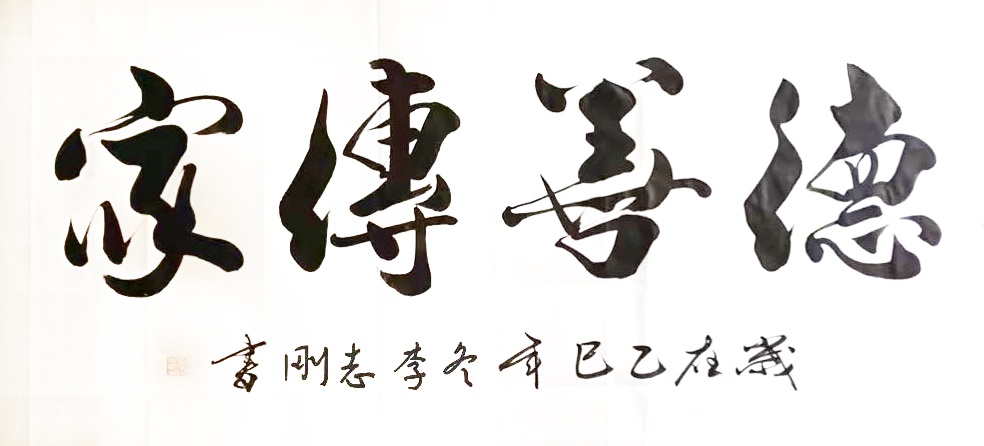 德善傳家
歲在乙巳年冬李志剛書